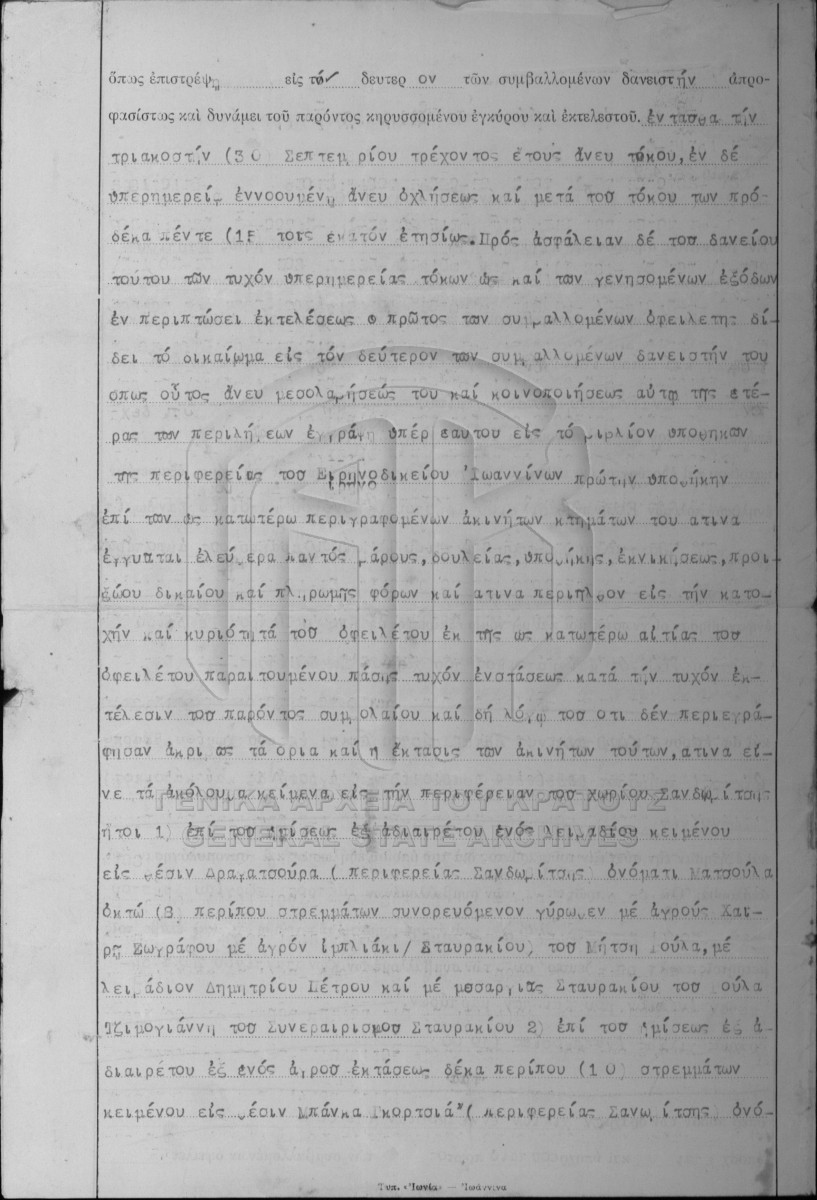 ὅπως ἐπιστρέψῃ εἰς τόν δεύτερον τῶν συμβαλλομένων δανειστήν ἀπρο-
φασίστως καὶ δυνάμει τοῦ παρόντος κηρυσσομένου ἐγκύρου καὶ ἐκτελεστοῦ. ἐνταῦθα τήν
τριακοστήν (30 Σεπτεμβρίου τρέχοντος ἔτους ἄνευ τόκου, ἐν δέ
ὑπερημερείᾳ ἐννοουμένῃ ἄνευ ὀχλήσεως καί μετά τοῦ τόκου των πρό-
δέκα πέντε (15 τοῖς ἑκατόν ἐτησίως. Πρός ἀσφάλειαν δέ τοῦ δανείου
τούτου τῶν τυχόν ὑπερημερείας τόκων ὡς καί των γενησομένων ἐξόδων
ἐν περιπτώσει ἐκτελέσεως ὁ πρῶτος των συμβαλλομένων ὀφειλέτης δί-
δει τό δικαίωμα εἰς τόν δεύτερον των συμβαλλομένων δανειστήν του
ὅπως οὗτος ἄνευ μεσολαβήσεώς του καί κοινοποιήσεως αὐτῷ της ἑτέ-
ρας των περιλήψεων ἐγγράψῃ ὑπέρ ἑαυτου εἰς τό βιβλίον υποθηκων
της περιφερείας του Εἰρηνοδικείου Ἰωαννίνων πρώτην υποθήκην
ἐπί των ὡς κατωτέρω περιγραφομένων ἀκινήτων κτημάτων του ατινα
ἐγγυᾶται ἐλεύθερα παντός βάρους, δουλείας, ὑποθήκης, ἐκνικήσεως, προι-
κώου δικαίου καί πληρωμῆς φόρων καί ατινα περιῆλθον εἰς τήν κατο-
χήν καί κυριότητά του ὀφειλέτου ἐκ της ὡς κατωτέρω αἰτίας του
ὀφειλέτου παραιτουμένου πάσης τυχόν ἐνστάσεως κατά τήν τυχόν ἐκ-
τέλεσιν του παρόντος συμβολαίου καί δή λόγῳ του οτι δέν περιεγρά-
φησαν ἀκριβως τά ὅρια καί ἡ ἔκτασις των ἀκινήτων τούτων, ατινα εἶ-
νε τά ἀκόλουθα κείμενα εἰς τήν περιφέρειαν του χωρίου Σανδοβίτσης
ἤτοι 1) ἐπί του ἡμίσεως ἐξ ἀδιαιρέτου ἑνός λειβαδίου κειμένου
εἰς θέσιν Δραγατσούρα ( περιφερείας Σανδοβίτσης) ὀνόματι Ματσούλα
ὀκτώ (8) περίπου στρεμμάτων συνορευόμενον γύρωθεν μέ ἀγρούς
Ζωγράφου μέ ἀγρόν Σταυρακίου) του Μήτση Γούλα, μέ
λειβάδιον Δημητρίου Πέτρου καί μέ Σταυρακίου του
Τζιμογιάννη του Συνεταιρισμου Σταυρακίου 2) ἐπί του ἡμίσεως ἐξ ἀ-
διαιρέτου ἐξ ἑνός ἀγρου ἐκτάσεως δέκα περίπου (10) στρεμμάτων
κειμένου εἰς θέσιν Μπάνκα Γκορτσιά" ( περιφερείας Σανδοβίτσης) ὀνό-
ΓΕΝΙΚΑ ΑΡΧΕΙΑ ΤΟΥ ΚΡΑΤΟΥΣ
GENERAL STATE ARCHIVES
Τυπ. «Ἰωνία» — Ἰωάννινα